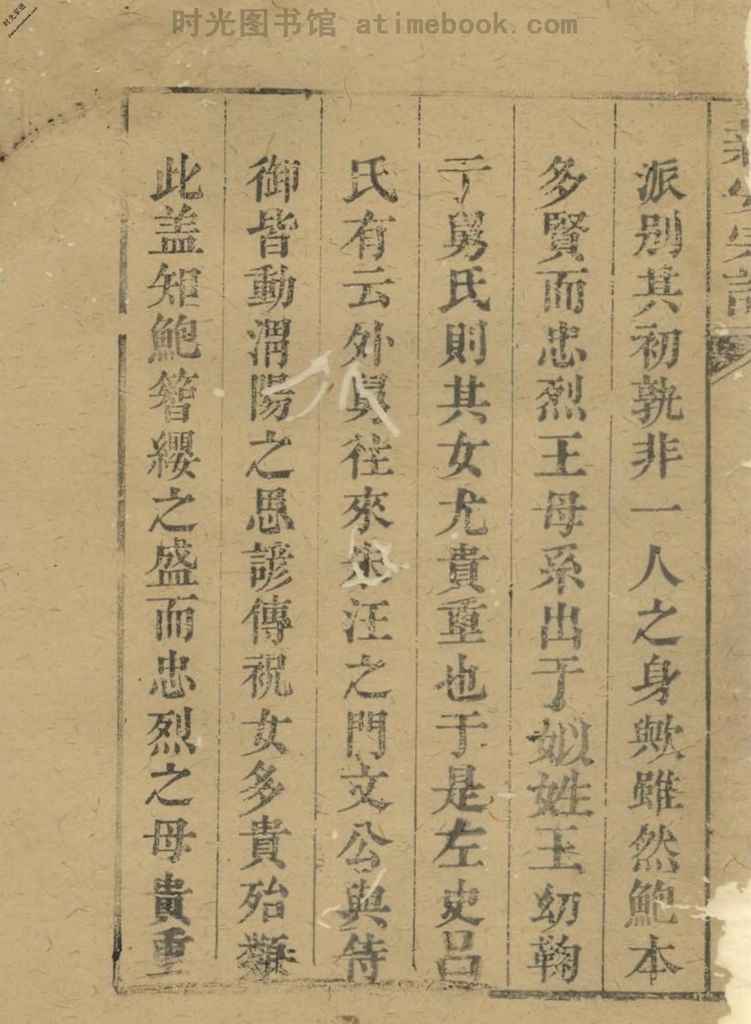 时光图书馆 atimebook.com
派別其初孰非一人之身歟雖然鮑本
多賢而忠烈王母系出于姒姓王幼鞠
于舅氏則其女尤貴重也于是左史呂
氏有云外舅往來朱汪之門文公與侍
御皆動渭陽之思諺傳祝女多貴殆類
此盖知鮑簪纓之盛而忠烈之母貴重